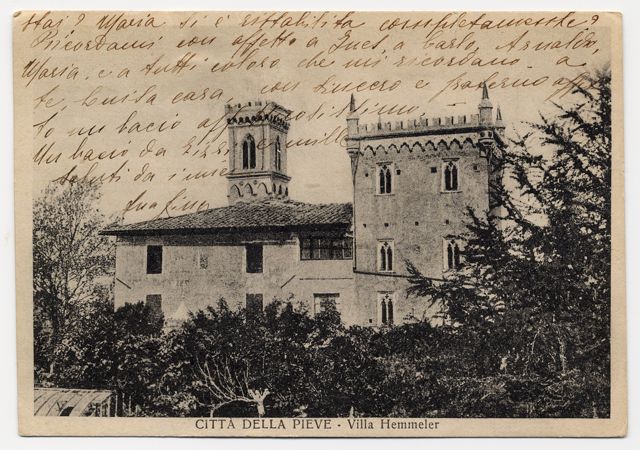 stai? Maria si è ristabilita completamente?
Ricordami con affetto a Ines, a Carlo, Arnaldo,
Maria, e a tutti coloro che mi ricordano. a
te, Luisa cara, con sincero e paterno affet
to un bacio affettuosissimo
Un bacio da
saluti da
CITTÀ DELLA PIEVE - Villa Hemmeler